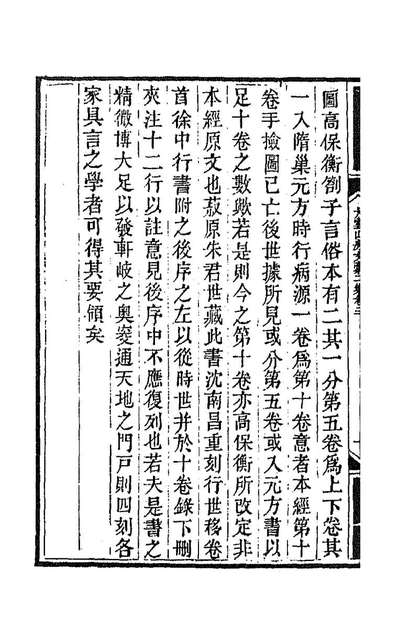 圖高保衡劄子言俗本有二其一分第五卷爲上下卷其
一入隋巢元方時行病源一卷爲第十卷意者本經第十
卷手撿圖已亡後世據所見或分第五卷或入元方書以
足十卷之數歟若是則今之第十卷亦高保衡所改定非
本經原文也茲原朱君世藏此書沈南昌重刻行世移卷
首徐中行書附之後序之左以從時世并於十卷錄下刪
夾注十二行以註意見後序中不應復列也若夫是書之
精微博大足以發軒岐之奥窔通天地之門戸則四刻各
家具言之學者可得其要領矣